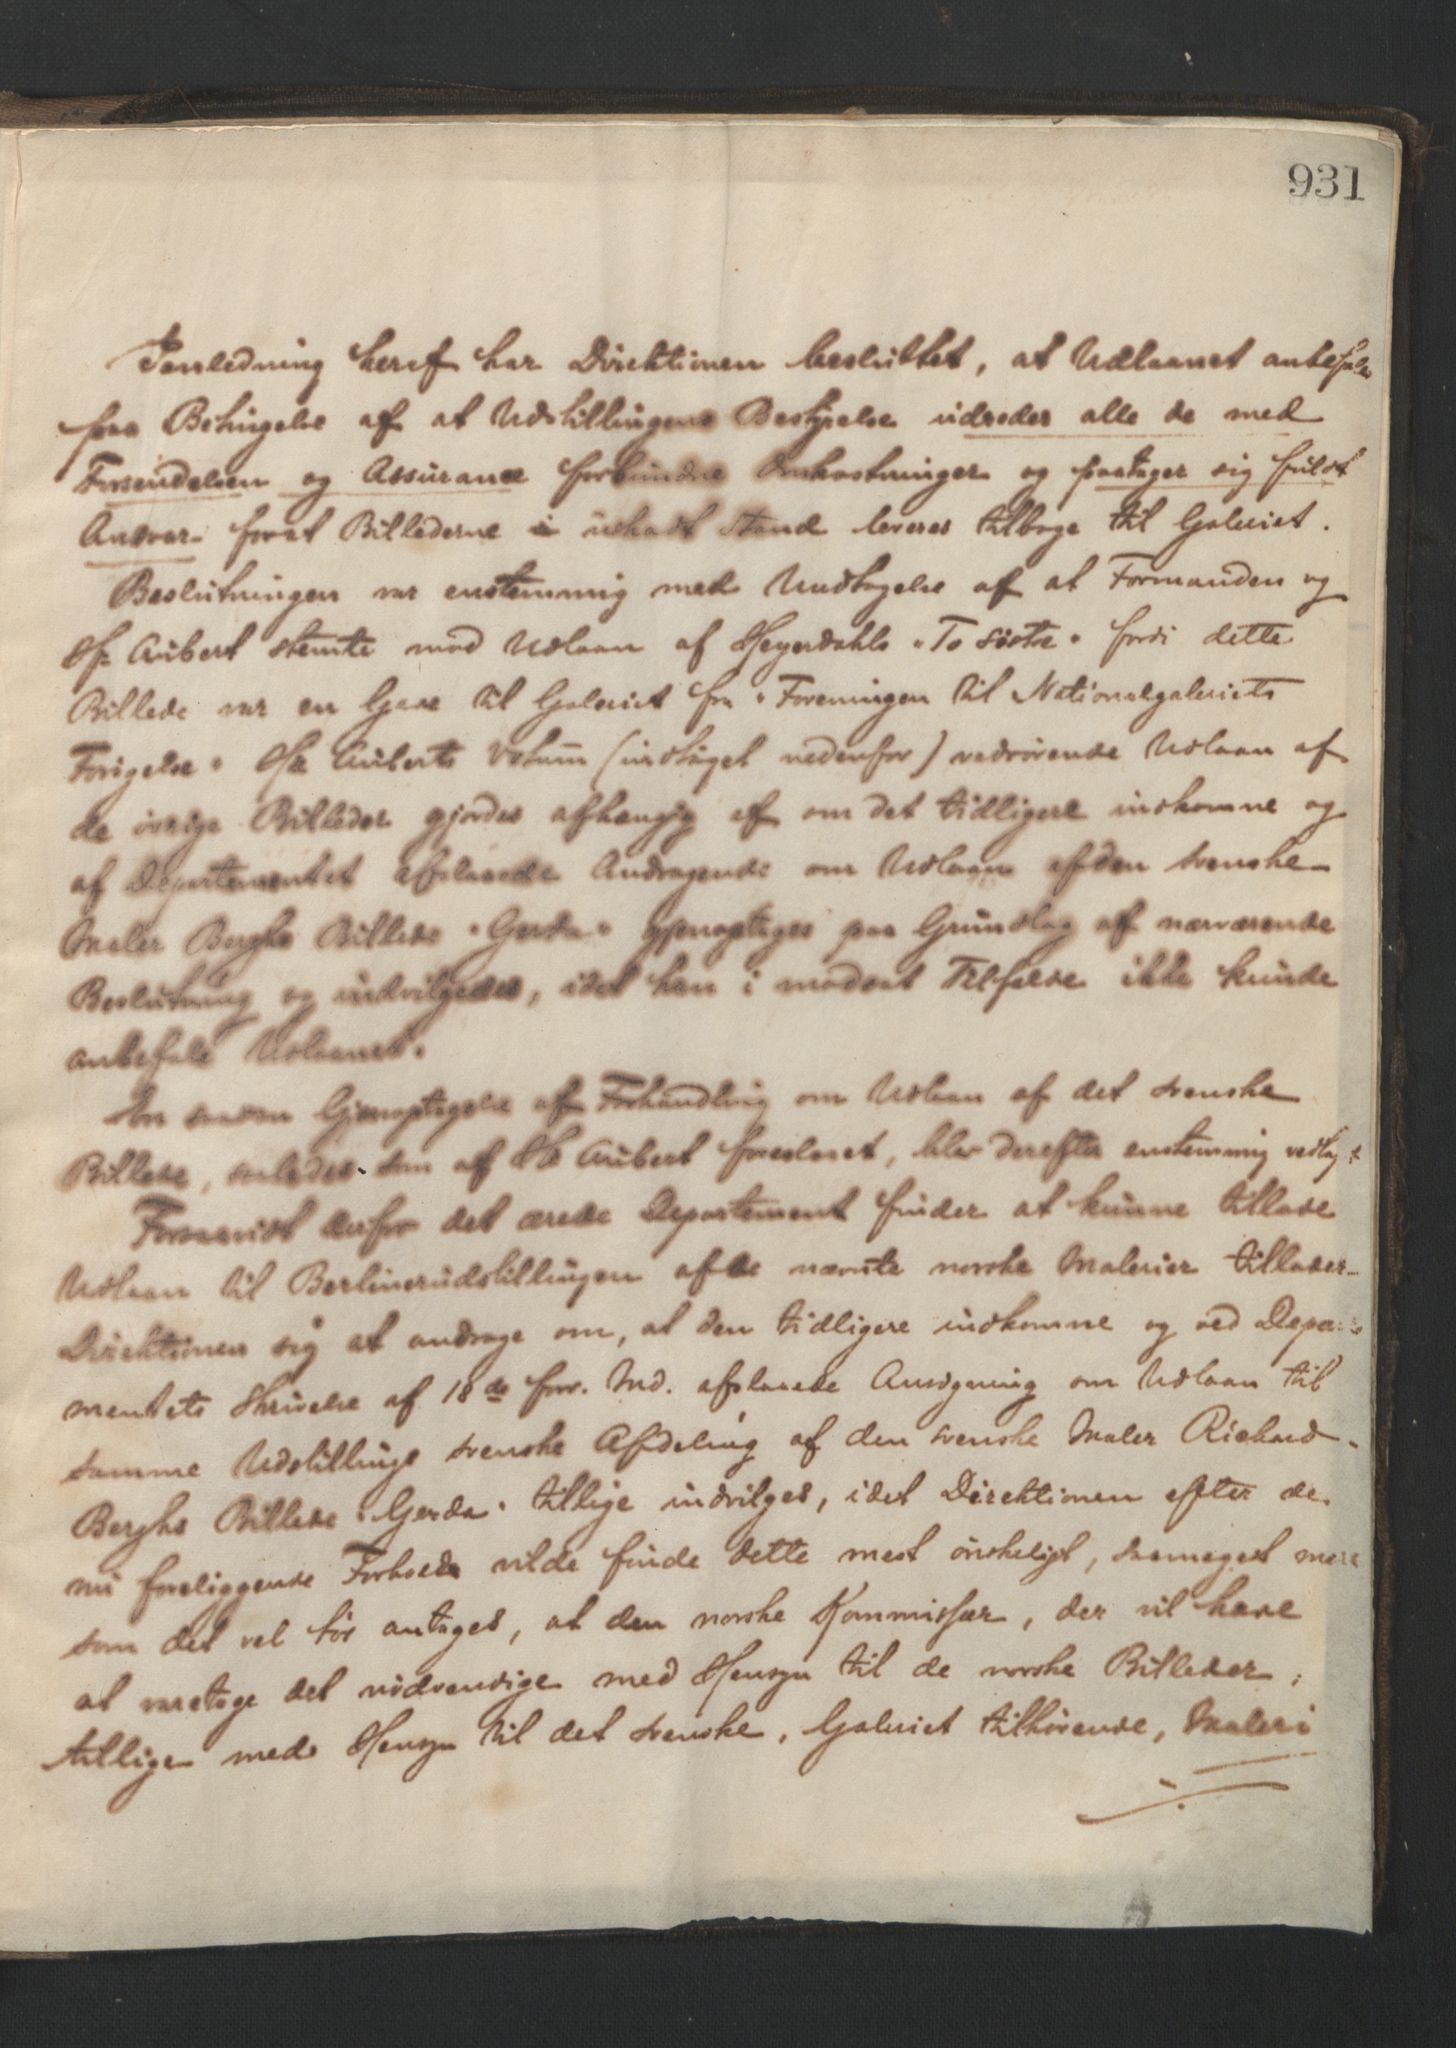 931
I anledning heraf har Direktionen besluttet, at Udlaanet anbefales
paa Betingelse af at Udstillingens Bestyrelse udreder alle de med
Forsendelsen og Assurance forbundne Omkostninger og paatager sig fuldt
Ansvar for at Billederne i uskadt Stand leveres tilbage til Galeriet.
Beslutningen var enstemmig med Undtagelse af at Formanden og
Hr. Aubert stemte mod Udlaan af Heyerdahls "To Søstre" fordi dette
Billede var en Gave til Galeriet fra "Foreningen til Nationalgaleriets
Forøgelse". Hr. Auberts Votum (indtaget nedenfor) vedrørende Udlaan af
de øvrige Billeder gjordes afhængig af om det tidligere indkomne og
af Departementet afslaaede Andragende om Udlaan af den svenske
Maler Berghs Billede "Gerda" gjenoptages paa Grundlag af nærværende
Beslutning og indvilgedes, idet han i modsat Tilfælde ikke kunde
anbefale Udlaanet.
En saadan Gjenoptagelse af Forhandling om Udlaan af det svenske
Billede, saaledes som af Hr Aubert foreslaaet, blev derefter enstemmig vedtaget
Forsaavidt derfor det ærede Departement finder at kunne tillade
Udlaan til Berlinerudstillingen af de nævnte norske Malerier tillader
Direktionen sig at andrage om, at den tidligere indkomne og ved Departe
mentets Skrivelse af 18de forr. Md. afslaaede Ansøgning om Udlaan til
samme Udstillings svenske Afdeling af den svenske Maler Richard
Berghs Billede "Gerda" tillige indvilges, idet Direktionen efter de
nu foreliggende Forhold vilde finde dette mest ønskeligt, saameget mere
som det vel tør antages, at den norske Kommissær, der vil have
at varetage det nødvendige med Hensyn til de norske Billeder,
tillige med Hensyn til det svenske, Galeriet tilhørende, Maleri
./.